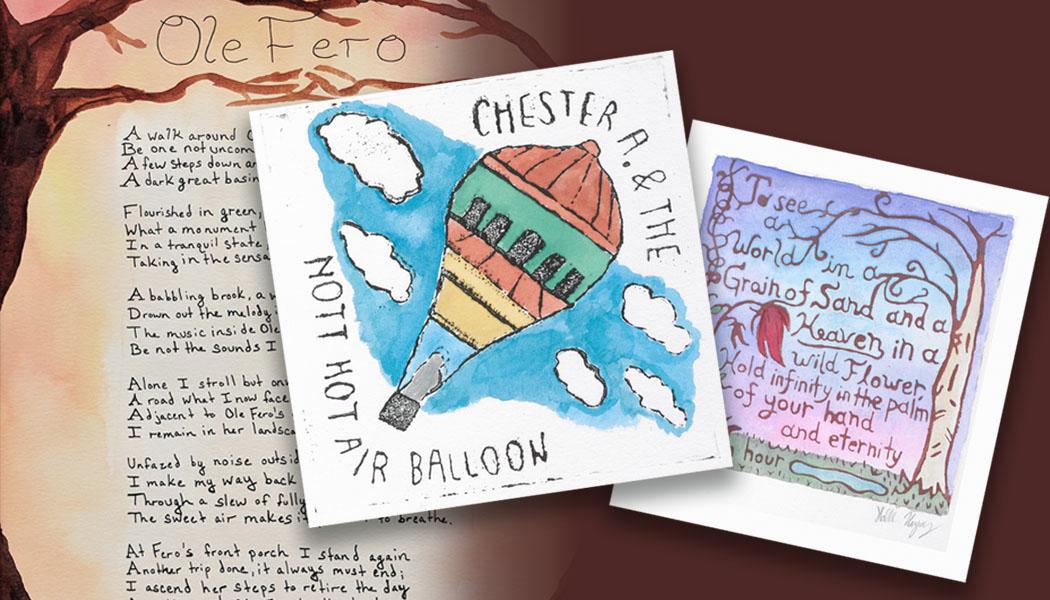 Ole Fero
A walk around
Be one not uncom
A few steps down an
A dark great basin
Flourished in green,
What a monument
In a tranquil state,
Taking in the sensa
A babbling brook, a w
Drown out the melody
The music inside Ole
Be not the sounds I
Alone I stroll but on
A road what I now face
Adjacent to Ole Fero's
I remain in her landsca
Unfazed by noise outsid
I make my way back
Through a slew of fully
The sweet air makes it to breathe.
At Fero's front porch I stand again
Another trip done, it always must end;
I ascend her steps to retire the day
CHESTER A. & THE
NOTT HOT AIR BALLOON
To see
a
World in a
Grain of Sand and a
Heaven in a
wild Flower,
Hold infinity in the palm
of your hand
and eternity
hour